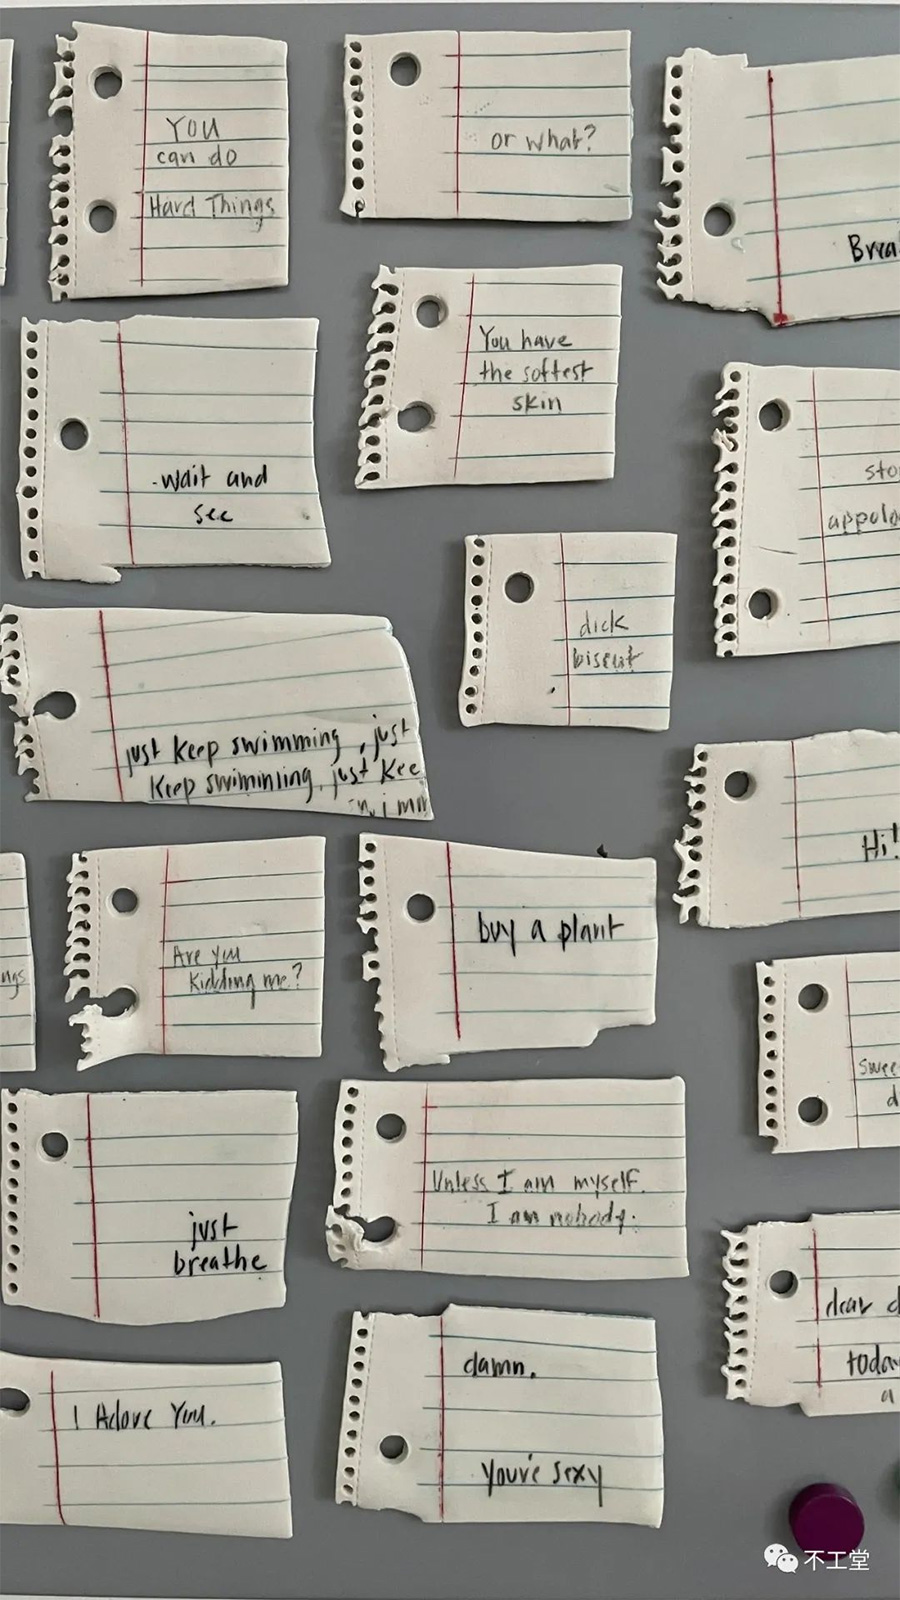 You
can do
Hard Things
or what?
Brea
You have
the softest
skin
-wait and
see
sto
appolo
dick
biscut
just keep swimming, just
keep swiminling, just kee
Hi!
ngs
Are you
kidding me?
buy a plant
swee
d
just
breathe
Unless I am myself.
I am nobody.
dear d
today
a
I Adore You.
damn.
you're sexy
不工堂